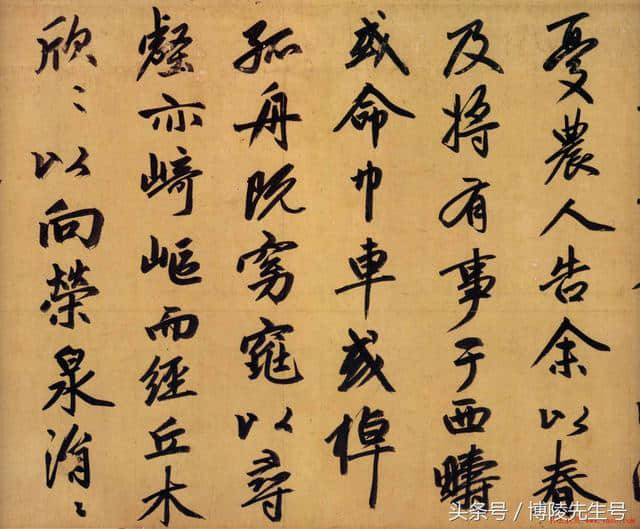 憂農人告余以春
及將有事于西疇
或命巾車或棹
孤舟既窈窕以尋
壑亦崎嶇而經丘木
欣〻以向榮泉涓〻
头条号 / 博陵先生号